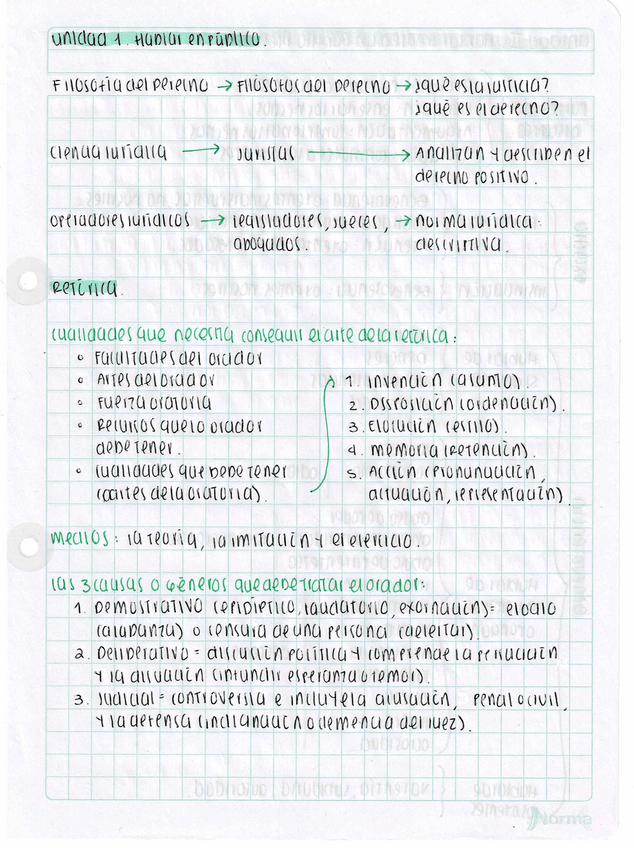 Unidad 1. Hablar en público.
Filosofía del Derecho → Filósofos del Derecho → ¿qué es la justicia?
¿qué es el derecho?
Ciencia jurídica → Juristas → Analizan y describen el
derecho positivo.
Operadores jurídicos → legisladores, jueces, → norma jurídica:
abogados. descriptiva.
Retórica.
Cualidades que necesita conseguir el arte de la retórica:
° Facultades del orador
° Artes del orador
° Fuerza oratoria
° Recursos que lo orador
debe tener.
° Cualidades que debe tener
(partes de la oratoria).
1. Invención (asunto).
2. Disposición (ordenación).
3. Elocución (estilo).
4. Memoria (retención).
5. Acción (pronunciación,
actuación, representación).
Medios: la teoría, la imitación y el ejercicio.
Las 3 causas o géneros que debe tratar el orador:
1. Demostrativo (epidíptico, laudatorio, exornación)= elogio
(alabanza) o censura de una persona (deleitar).
2. Deliberativo = discusión política y comprende la persuación
y la disuación (infundir esperanza o temor).
3. Judicial = controversia e incluye la acusación, penal o civil,
y la defensa (indignación o clemencia del juez).
Norma